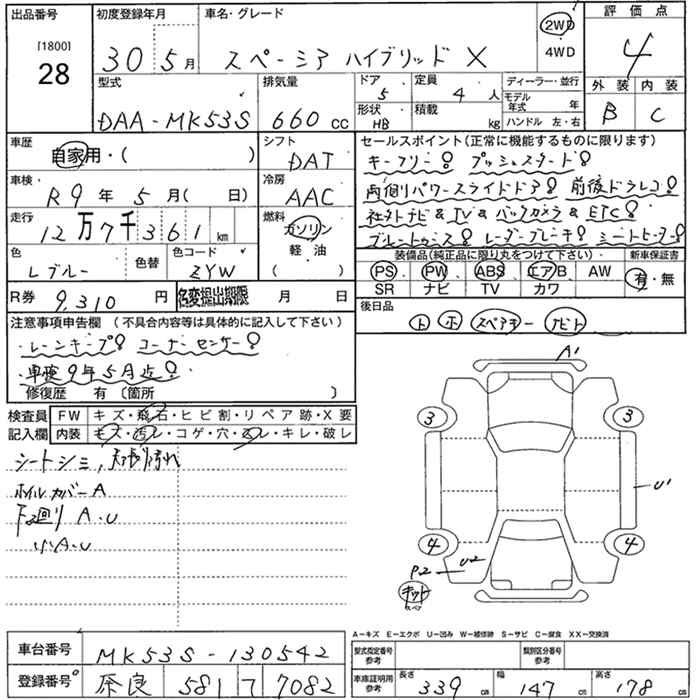 出品番号 初度登録年月 車名・グレード 評価点
[1800] 28 30 5月 スペーシア ハイブリッド X 2WD 4WD 4
型式 排気量 ドア 5 定員 4人 ディーラー・並行 外装 内装
モデル年式 年
DAA-MK53S 660cc 形状 HB 積載 kg ハンドル 左・右 B C
車歴 自家用・( ) シフト DAT セールスポイント(正常に機能するものに限ります)
キーフリー プッシュスタート
車検 R9年5月( 日) 冷房 AAC 両側パワースライドドア 前後ドラレコ
走行 12万7千361km 燃料 ガソリン 軽油 ( ) 社外ナビ & TV & バックカメラ & ETC
ブルートゥース レーダーブレーキ シートヒーター
色 Lブルー 色替 色コード ZYW 装備品(純正品に限り丸をつけて下さい) 新車保証書
PS PW ABS エアB AW 有・無
SR ナビ TV カワ
R券 9,310円 名変提出期限 月 日 後日品
注意事項申告欄 (不具合内容等は具体的に記入して下さい) ト ホ スペアキー ナビト
・レーンキープ コーナーセンサー
・車検9年5月迄
修復歴 有 〔箇所 〕
検査員 FW キズ・飛石・ヒビ割・リペア跡・X要
記入欄 内装 キズ・汚レ・コゲ・穴・スレ・キレ・破レ
シートシミ, 天張り汚れ
ホイルカバーA
下廻り A・U
小A・U
A1
3 3
U1
4 4
P2 U2
キット
A-キズ E-エクボ U-凹み W-補修跡 S-サビ C-腐食 XX-交換済
車台番号 MK53S-130542 型式指定番号 参考 類別区分番号 参考
登録番号 奈良 581 7082 車庫証明用 参考 長さ 339cm 幅 147cm 高さ 178cm